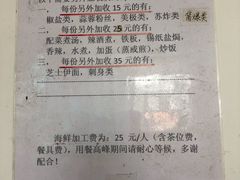 一、每份另外加收15元的有:
椒盐类、蒜蓉粉丝、美极类、苏炸类
葡爆类
二、每份另外加收25元的有:
配菜煮汤、辣酒煮、铁板、锡纸盐焗、
香辣、水煮、加蛋(蒸或煎)、炒饭
三、每份另外加收35元的有:
芝士伊面、刺身类
海鲜加工费为:25元/人(含茶位费,
餐具费),用餐高峰期间请耐心等候,多谢
配合!